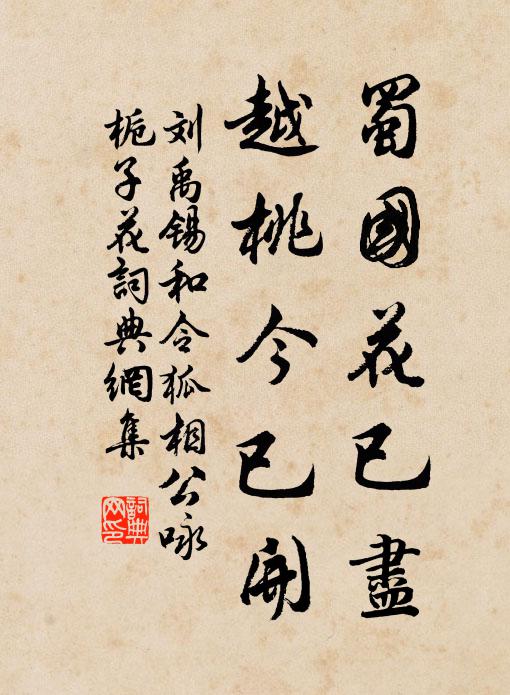 蜀國花已盡
越桃今已開
刘禹锡和令狐相公咏
栀子花詞典網集
詞典网印